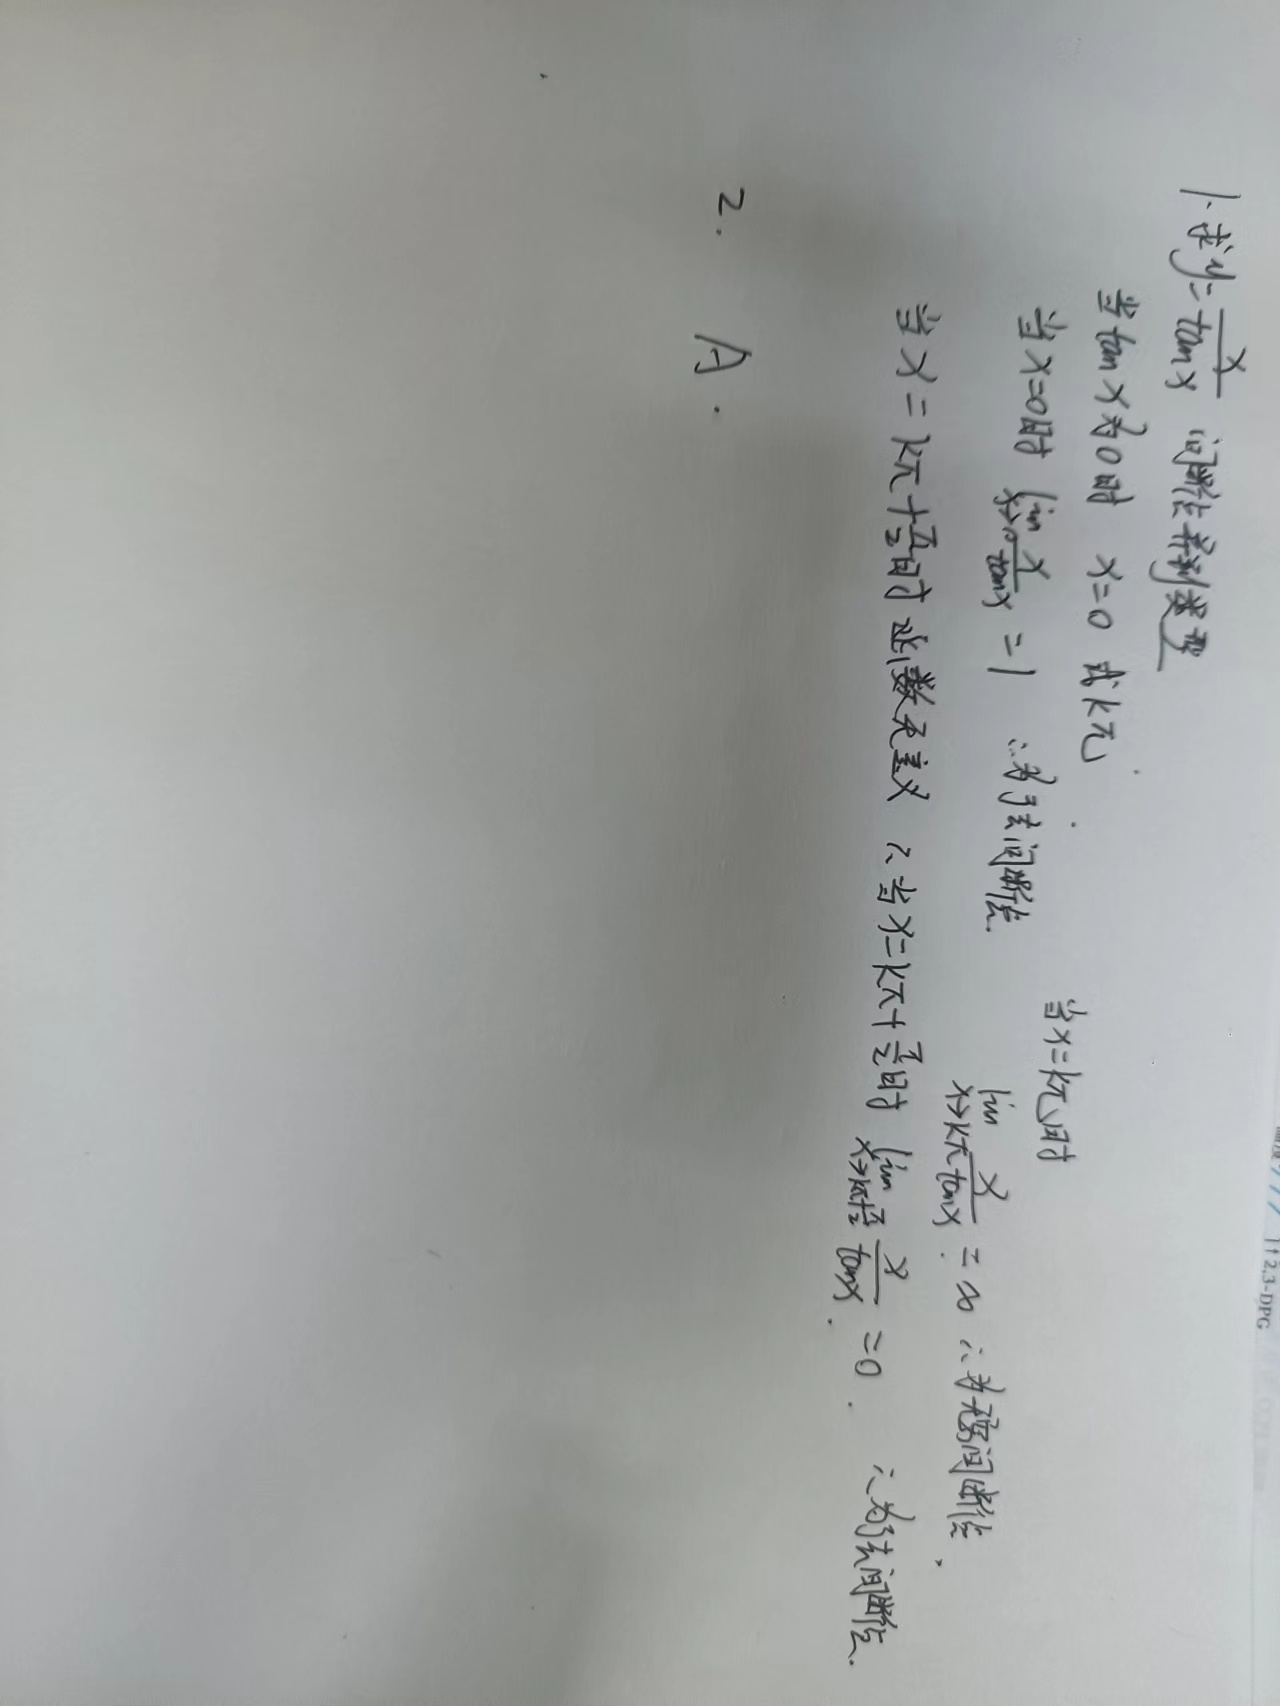 1. 求y=x/tanx 间断点并判类型
当tanx为0时 x=0 或kπ
当x=0时 lim x→0 x/tanx =1 ∴为可去间断点.
当x=kπ时
lim x→kπ x/tanx =∞ ∴为无穷间断点.
当x=kπ+π/2时 函数无意义 ∴当x=kπ+π/2时 lim x→kπ+π/2 x/tanx =0. ∴为可去间断点.
2. A.
112.3-DPG